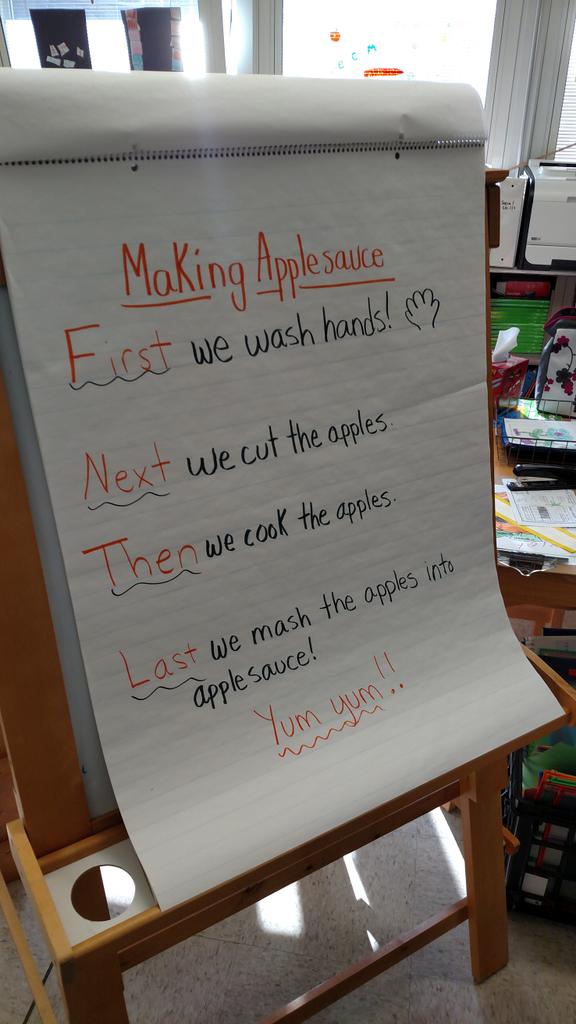 Making Applesauce
First we wash hands!
Next we cut the apples.
Then we cook the apples.
Last we mash the apples into
applesauce!
Yum yum!!